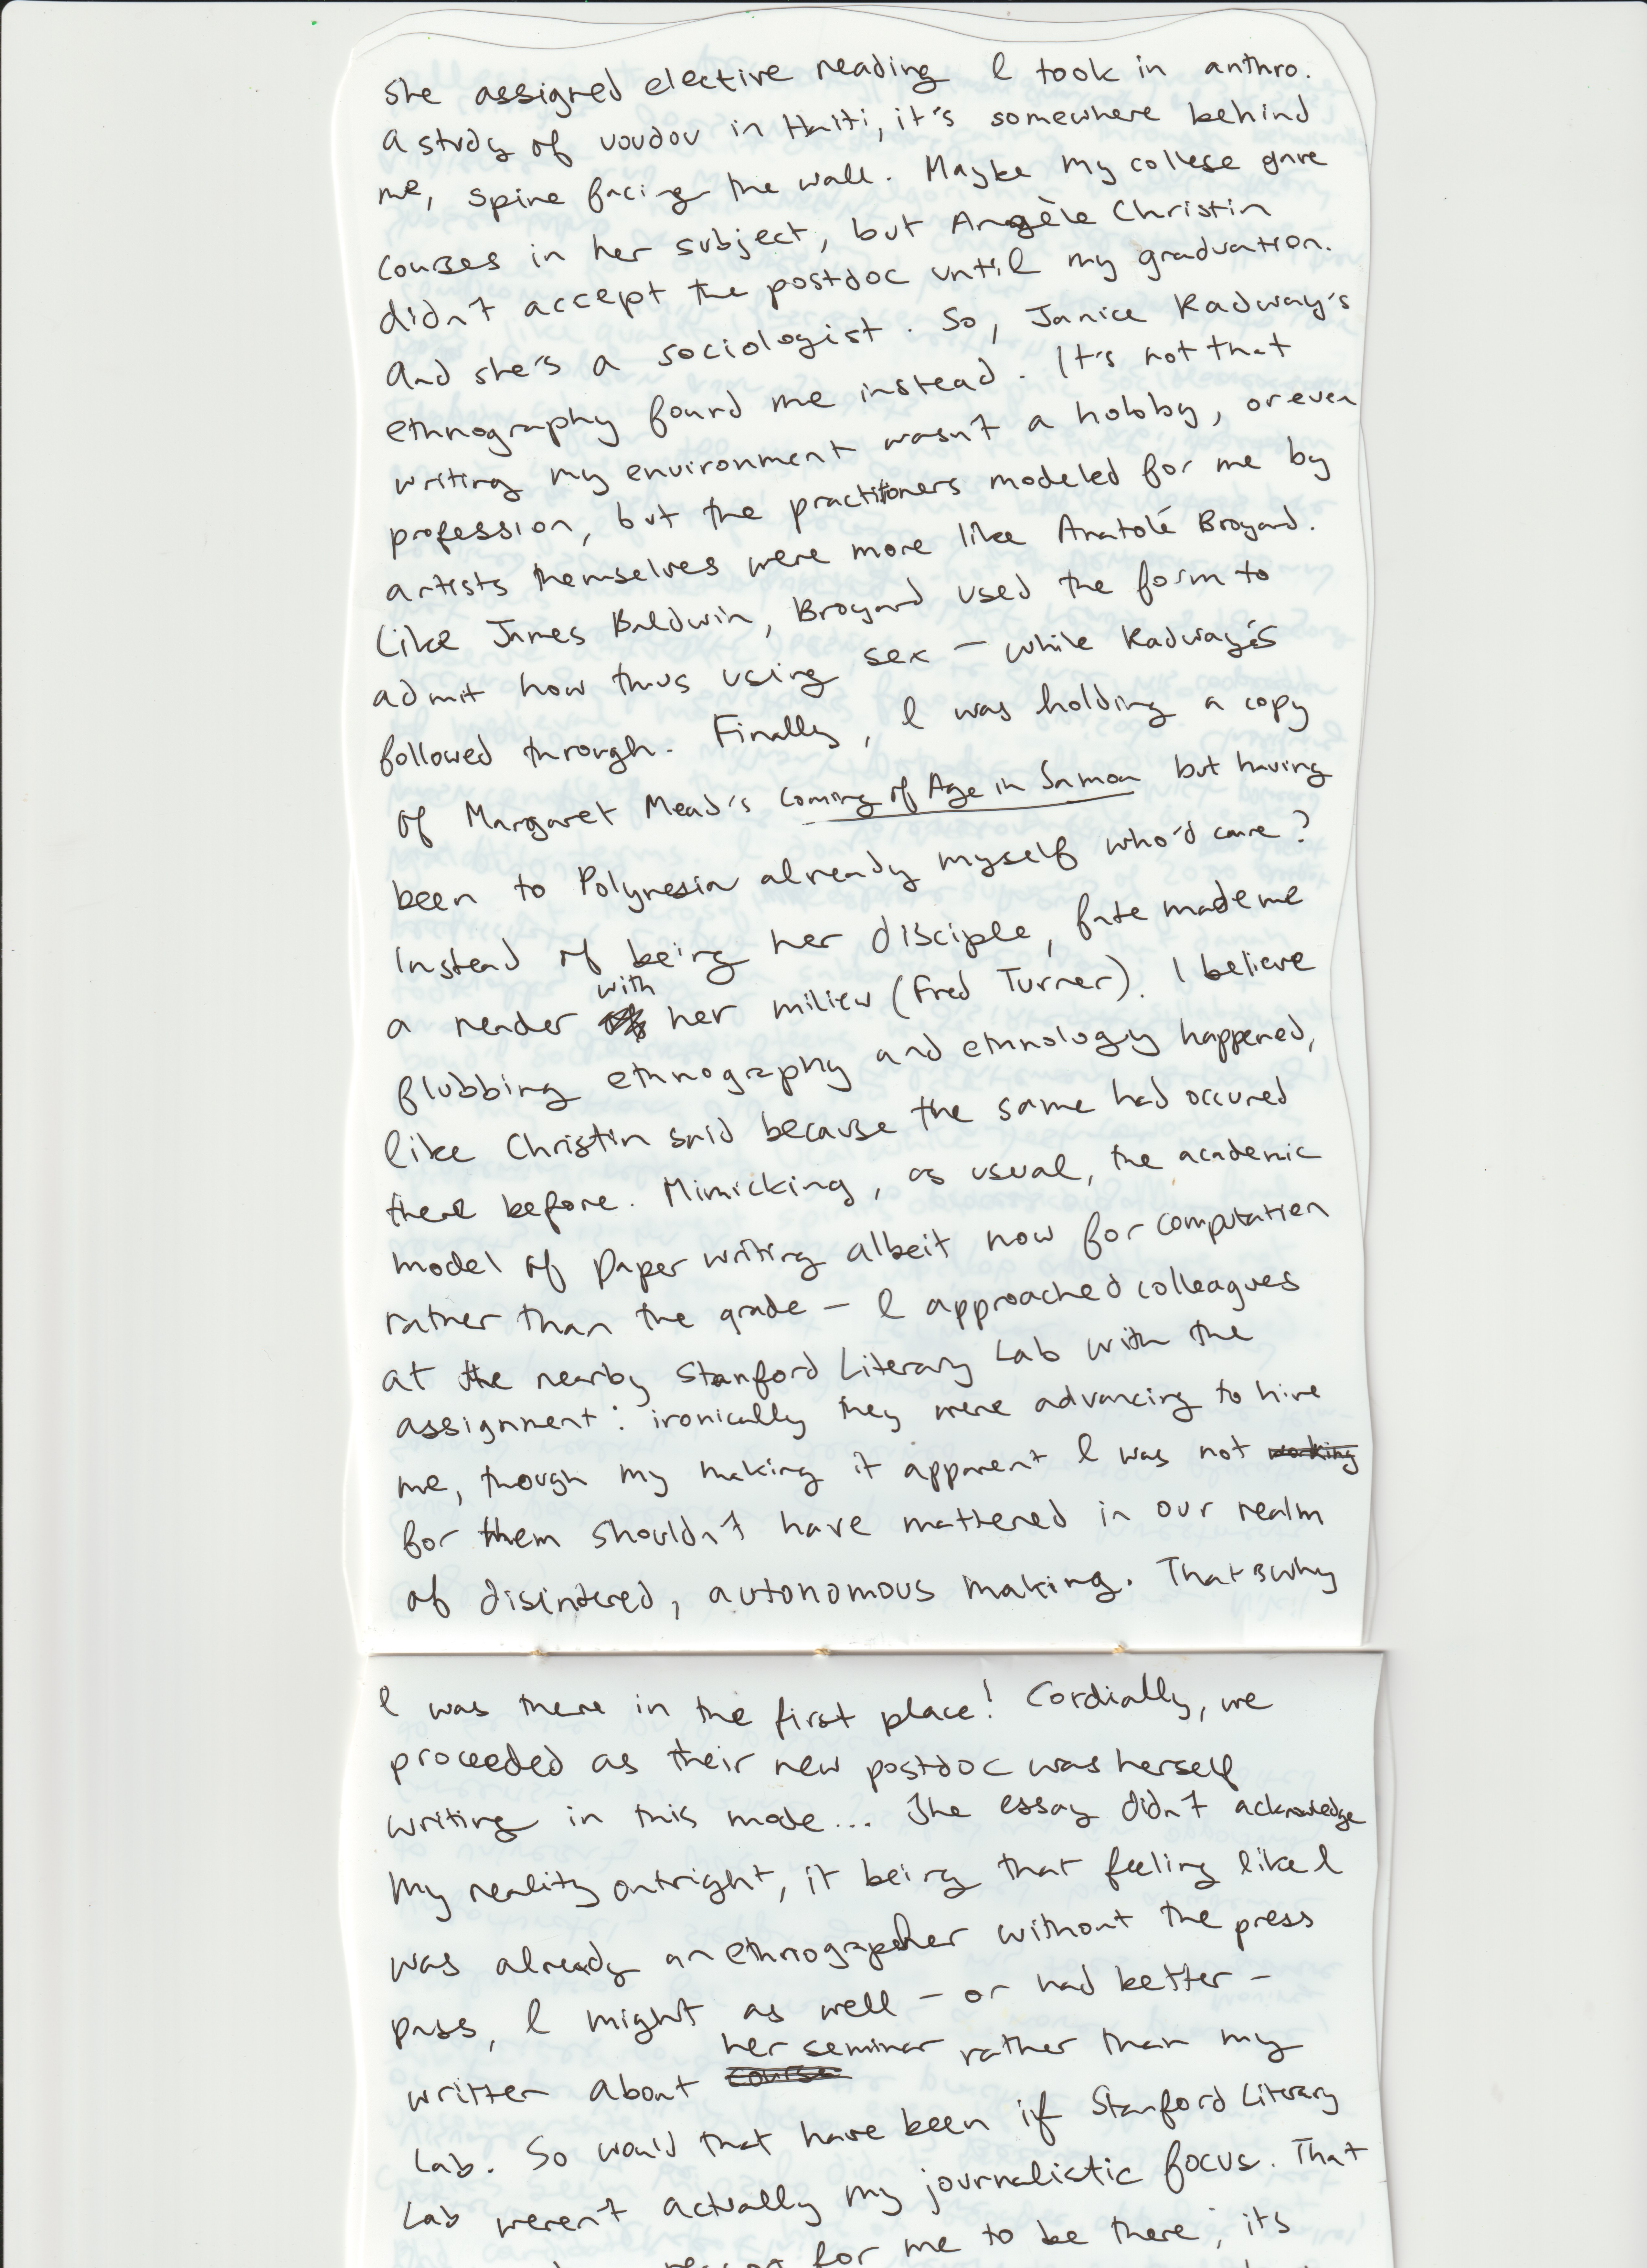 She assigned elective reading I took in anthro.
A study of voudou in Haiti, it's somewhere behind
me, spine facing the wall. Maybe my college gave
courses in her subject, but Angèle Christin
didn't accept the postdoc until my graduation.
And she's a sociologist. So, Janice Radway's
ethnography found me instead. It's not that
writing my environment wasn't a hobby, or even
profession, but the practitoners modeled for me by
artists themselves were more like Anatolé Broyard.
Like James Baldwin, Broyard used the form to
admit how thus using sex – while Radway's
followed through. Finally, I was holding a copy
of Margaret Mead's Coming of Age in Samoa but having
been to Polynesia already myself who'd care?
Instead of being her disciple, fate made me
a reader with her milieu (Fred Turner). I believe
flubbing ethnography and ethnology happened,
like Christin said because the same had occured
there before. Mimicking, as usual, the academic
model of paper writing albeit now for computation
rather than the grade – I approached colleagues
at the nearby Stanford Literary Lab with the
assignment: ironically they were advancing to hire
me, though my making it apparent I was not working
for them shouldn't have mattered in our realm
of disintered, autonomous making. That's why
I was there in the first place! Cordially, we
proceeded as their new postdoc was herself
writing in this mode... The essay didn't acknowledge
my reality outright, it being that feeling like I
was already an ethnographer without the press
pass, I might as well – or had better –
written about her seminar rather than my
Lab. So would that have been if Stanford Literary
Lab weren't actually my journalistic focus. That
for me to be there; its